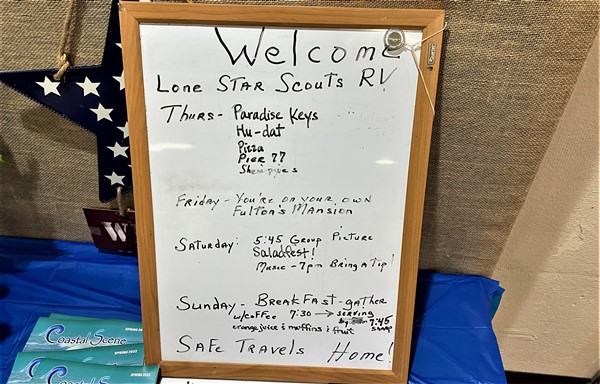 Welcome
Lone Star Scouts RV
Thurs- Paradise Keys
Hu-dat
Pizza
Pier 77
Friday - You're on your own
Fulton's Mansion
Saturday: 5:45 Group Picture
Saladfest!
Music - 7pm Bring a Tip!
Sunday - Breakfast - gather
w/coffee 7:30 → serving
by 7:45 sharp
orange juice & muffins & fruit
Safe Travels Home!
W
Coastal Scene
Coastal Scene